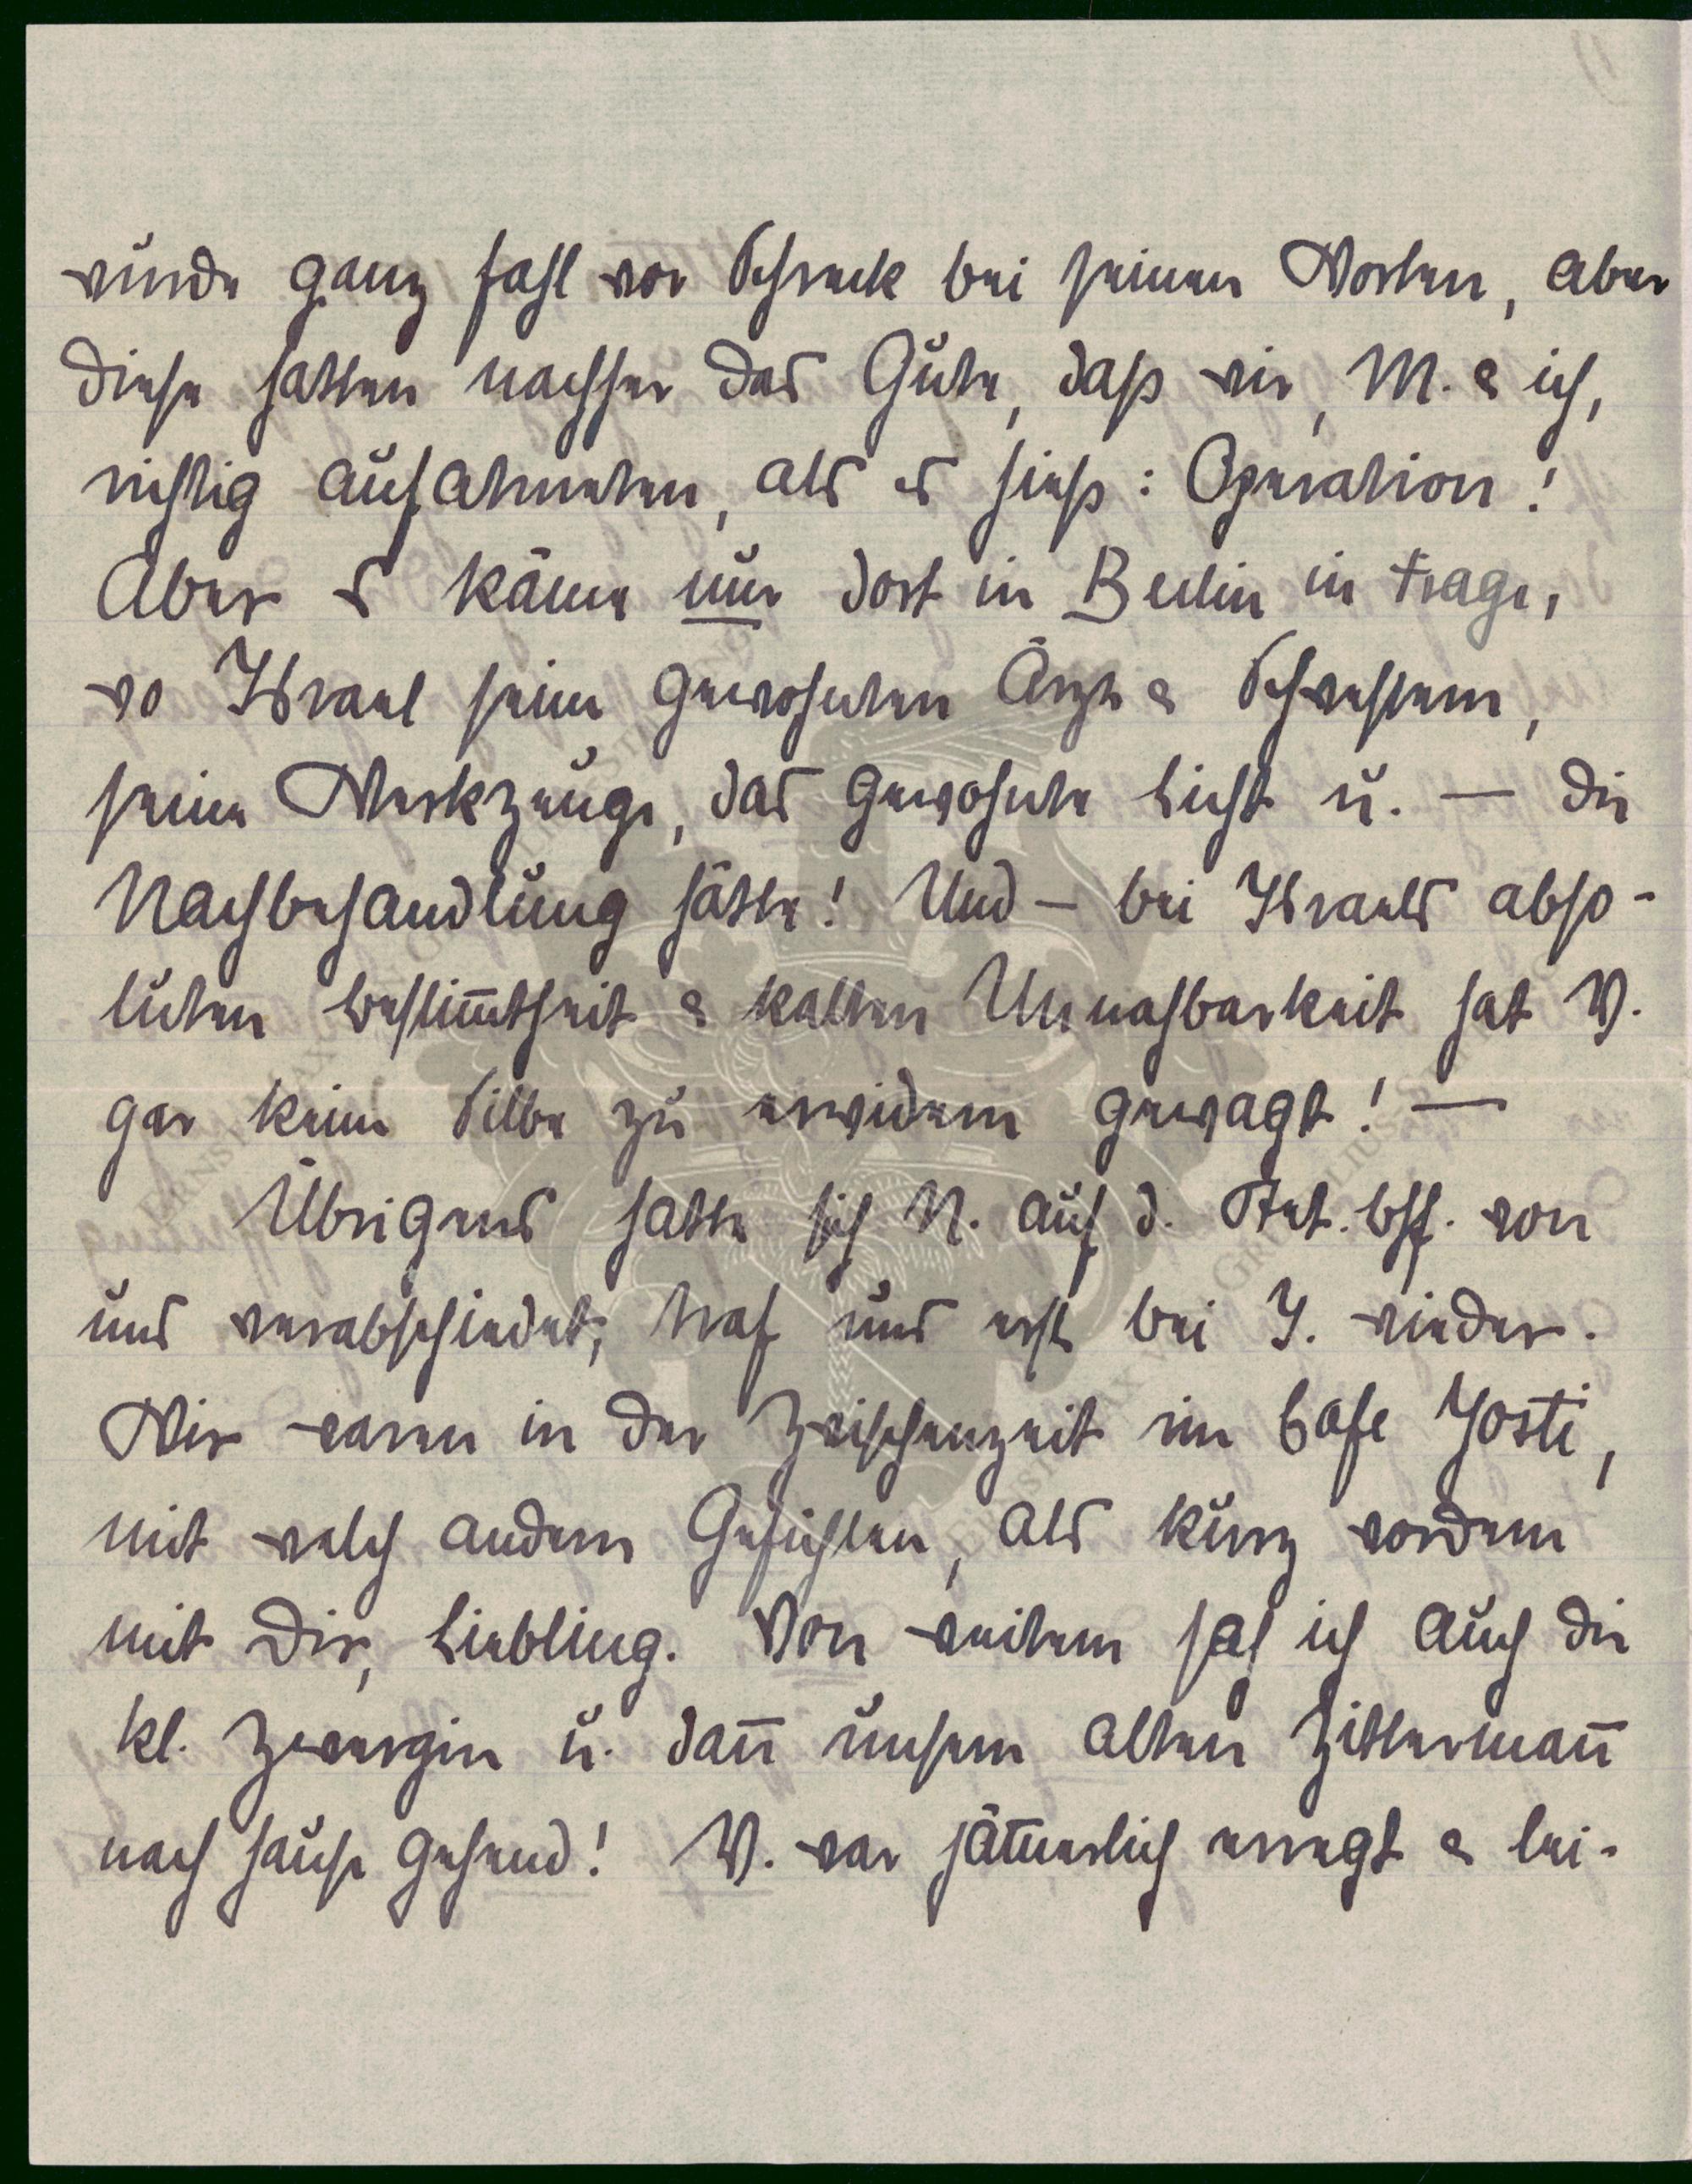 wurde ganz fahl vor Schreck bei seinen Worten, aber
diese hatten nachher das Gute, daß wir, M. & ich,
richtig aufatmeten, als es hieß: Operation!
Aber es käme nur dort in Berlin in Frage,
wo Israel seine gewohnten Ärzte & Schwestern,
seine Werkzeuge, das gewohnte Licht u. — die
Nachbehandlung hätte! Und — bei Israels abso-
luten Bestim̅theit & kalten Unnahbarkeit hat V.
gar keine Silbe zu erwidern gewagt! —
Übrigens hatte sich N. auf d. Stet. bhf. von
uns verabschiedet, traf uns erst bei I. wieder.
Wir waren in der Zwischenzeit im Cafe Josti,
mit welch andern Gefühlen, als kurz vordem
mit Dir, Liebling. Von weitem sah ich auch die
kl. Zwergin u. dan̅ unsern alten Zitterman̅
nach Hause gehend! V. war jäm̅erlich erregt & lei-